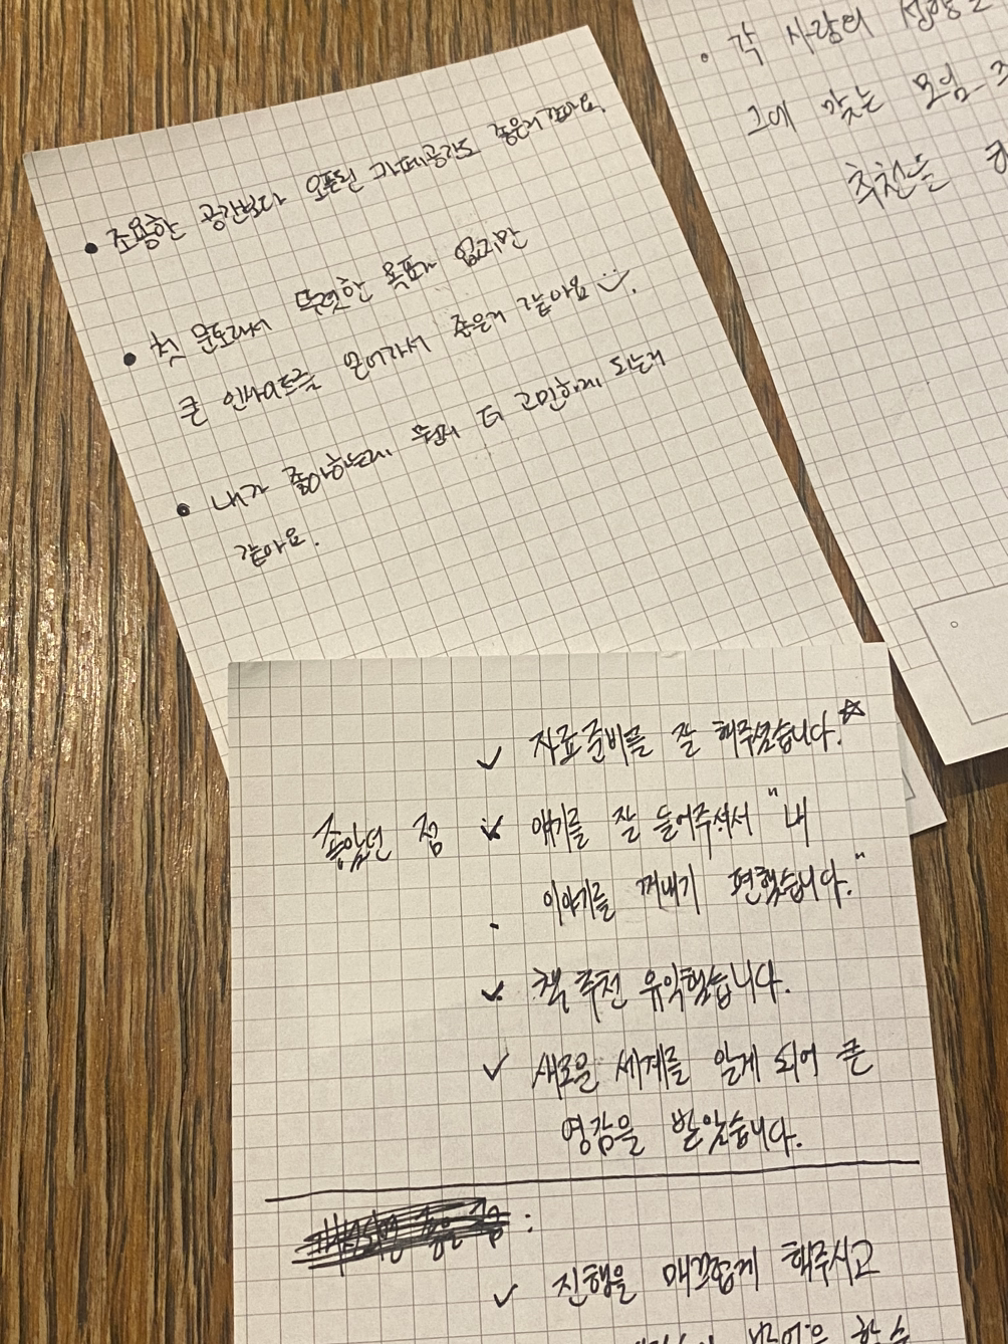 • 조용한 공간보다 오픈된 카페공간도 좋은거 같아요.
• 첫 문토라서 뚜렷한 목표가 없지만
큰 인사이트를 얻어가서 좋은거 같아요
• 내가 좋아하는게 뭔지 더 고민하게 되는거
같아요.
• 각 사람의 성향
그에 맞는 모임
추천을
✓ 자료준비를 잘 해주셨습니다.☆
좋았던 점 ✓ 얘기를 잘 들어주셔서 "내
이야기를 꺼내기 편했습니다."
✓ 책 추천 유익했습니다.
✓ 새로운 세계를 알게 되어 큰
영감을 받았습니다.
✓ 진행을 매끄럽게 해주시고